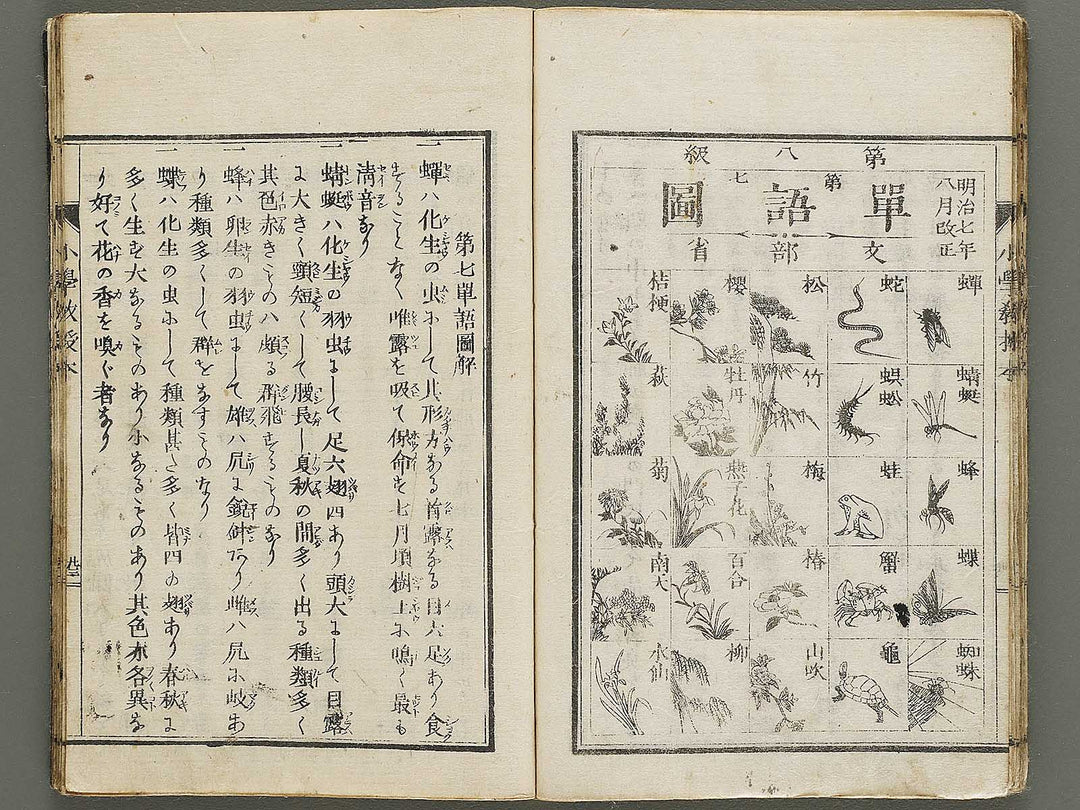 第八級
明治七年
八月改正
第七
單語圖
文部省
蟬
蜻蜓
蜂
蝶
蜘蛛
蛇
蜈蚣
蛙
蟹
龜
松
竹
梅
椿
山吹
櫻
牡丹
燕子花
百合
柳
桔梗
萩
菊
南天
水仙
第七單語圖解
一 蟬ハ化生の虫にして其形方なる首濶なる目六足あり食
することなく唯露を吸て保命す七月頃樹上に鳴く最も
淸音なり
一 蜻蜓ハ化生の羽虫にして足六翅四あり頭大にして目露
に大きく頸短くして腰長し夏秋の間多く出る種類多く
其色赤きものハ頗る群飛するものなり
一 蜂ハ卵生の羽虫にして雄ハ尻に針あり雌ハ尻に岐あ
り種類多くして群をなすものなり
一 蝶ハ化生の虫にして種類甚た多く皆四の翅あり春秋に
多く生す大なるものあり小なるものあり其色亦各異な
り好て花の香を嗅く者なり
小學敎授本